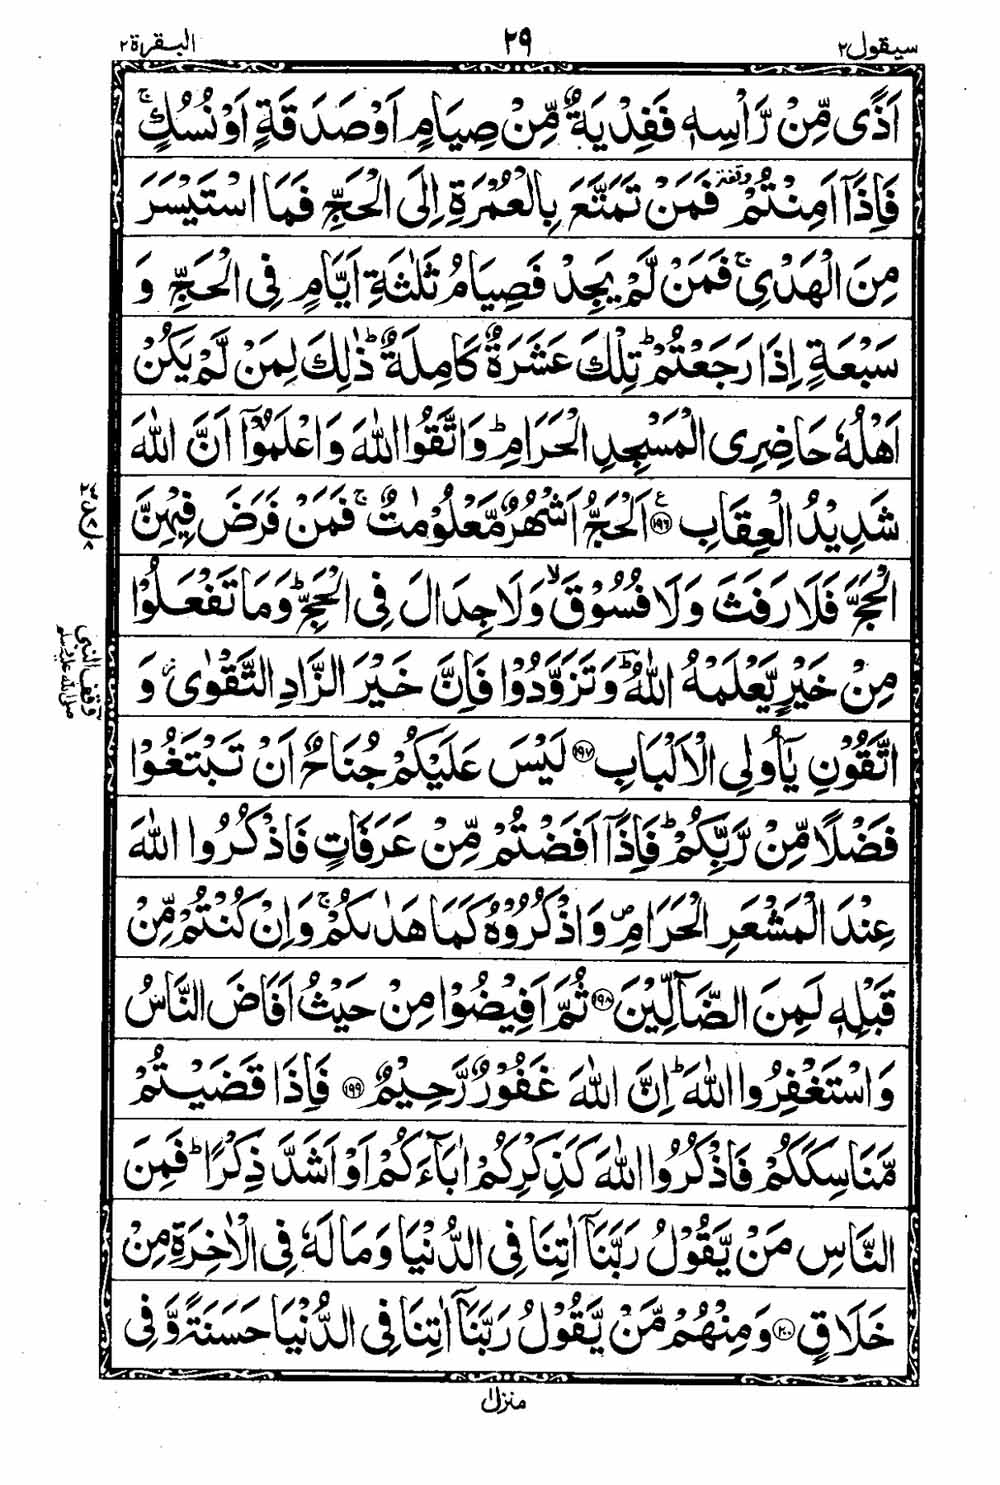 سیقول ۲
۲۹
البقرة ۲
اَذًى مِّنْ رَّاْسِهٖ فَفِدْيَةٌ مِّنْ صِيَامٍ اَوْ صَدَقَةٍ اَوْ نُسُكٍ ۚ
فَاِذَاۤ اَمِنْتُمْ وقفة فَمَنْ تَمَتَّعَ بِالْعُمْرَةِ اِلَى الْحَجِّ فَمَا اسْتَيْسَرَ
مِنَ الْهَدْيِ ۚ فَمَنْ لَّمْ يَجِدْ فَصِيَامُ ثَلٰثَةِ اَيَّامٍ فِى الْحَجِّ وَ
سَبْعَةٍ اِذَا رَجَعْتُمْ ؕ تِلْكَ عَشَرَةٌ كَامِلَةٌ ؕ ذٰلِكَ لِمَنْ لَّمْ يَكُنْ
اَهْلُهٗ حَاضِرِى الْمَسْجِدِ الْحَرَامِ ؕ وَاتَّقُوا اللّٰهَ وَاعْلَمُوْۤا اَنَّ اللّٰهَ
شَدِيْدُ الْعِقَابِ ۱۹۶ ع اَلْحَجُّ اَشْهُرٌ مَّعْلُوْمٰتٌ ۚ فَمَنْ فَرَضَ فِيْهِنَّ
الْحَجَّ فَلَا رَفَثَ وَلَا فُسُوْقَ ۙ وَلَا جِدَالَ فِى الْحَجِّ ؕ وَمَا تَفْعَلُوْا
مِنْ خَيْرٍ يَّعْلَمْهُ اللّٰهُ ؕ وَتَزَوَّدُوْا فَاِنَّ خَيْرَ الزَّادِ التَّقْوٰى ز وَ
اتَّقُوْنِ يٰۤاُولِى الْاَلْبَابِ ۱۹۷ لَيْسَ عَلَيْكُمْ جُنَاحٌ اَنْ تَبْتَغُوْا
فَضْلًا مِّنْ رَّبِّكُمْ ؕ فَاِذَاۤ اَفَضْتُمْ مِّنْ عَرَفَاتٍ فَاذْكُرُوا اللّٰهَ
عِنْدَ الْمَشْعَرِ الْحَرَامِ ص وَاذْكُرُوْهُ كَمَا هَدٰىكُمْ ۚ وَاِنْ كُنْتُمْ مِّنْ
قَبْلِهٖ لَمِنَ الضَّآلِّيْنَ ۱۹۸ ثُمَّ اَفِيْضُوْا مِنْ حَيْثُ اَفَاضَ النَّاسُ
وَاسْتَغْفِرُوا اللّٰهَ ؕ اِنَّ اللّٰهَ غَفُوْرٌ رَّحِيْمٌ ۱۹۹ فَاِذَا قَضَيْتُمْ
مَّنَاسِكَكُمْ فَاذْكُرُوا اللّٰهَ كَذِكْرِكُمْ اٰبَآءَكُمْ اَوْ اَشَدَّ ذِكْرًا ؕ فَمِنَ
النَّاسِ مَنْ يَّقُوْلُ رَبَّنَاۤ اٰتِنَا فِى الدُّنْيَا وَمَا لَهٗ فِى الْاٰخِرَةِ مِنْ
خَلَاقٍ ۲۰۰ وَمِنْهُمْ مَّنْ يَّقُوْلُ رَبَّنَاۤ اٰتِنَا فِى الدُّنْيَا حَسَنَةً وَّفِى
وقف النبی
صلی اللہ علیہ وسلم
منزل ۱